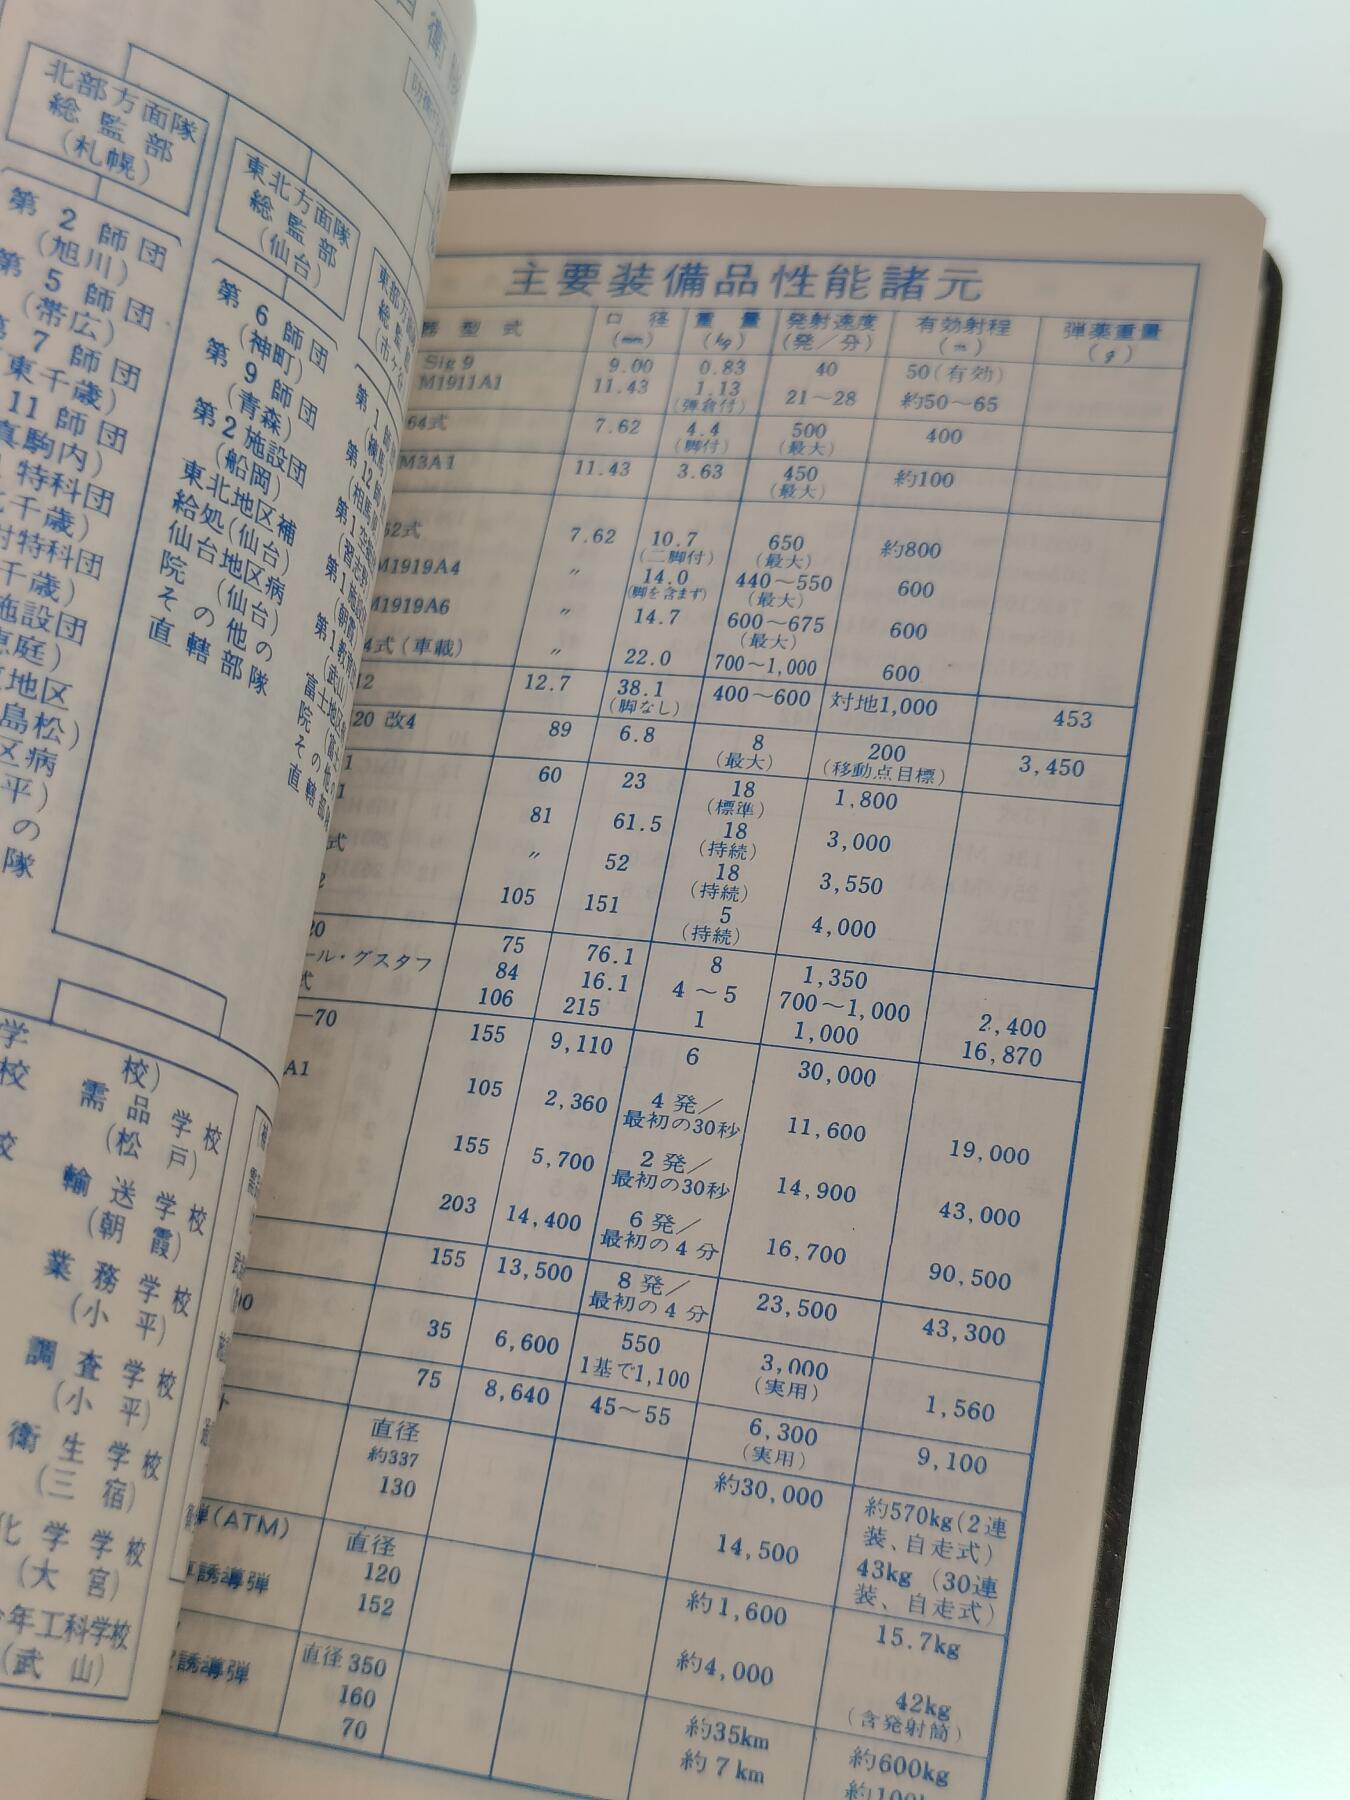 北部方面隊
総監部
(札幌)
第2師団
(旭川)
第5師団
(帯広)
7師団
東千歳)
11師団
真駒内)
特科団
千歳)
特科団
千歳)
施設団
恵庭)
地区
島松)
区病
平)
の
隊
東北方面隊
総監部
(仙台)
第6師団
(神町)
第9師団
(青森)
第2施設団
(船岡)
東北地区補
給処(仙台)
仙台地区病
院 (仙台)
その他の
直轄部隊
東部方面
総監
(市ヶ谷
第1師
(練馬
第12師
(相馬原
第1空挺
(習志野
第1施設
(朝霞
第1教育
(武山
富士地区
院(富士
その他の
直轄部
学 校)
校
需品学校
(松戸)
輸送学校
(朝霞)
業務学校
(小平)
調査学校
(小平)
衛生学校
(三宿)
化学学校
(大宮)
年工科学校
(武山)
主要装備品性能諸元
型式 口径(mm) 重量(kg) 発射速度(発/分) 有効射程(m) 弾薬重量(g)
Sig 9 9.00 0.83 40 50(有効)
M1911A1 11.43 1.13(弾倉付) 21〜28 約50〜65
64式 7.62 4.4(脚付) 500(最大) 400
M3A1 11.43 3.63 450(最大) 約100
62式 7.62 10.7(二脚付) 650(最大) 約800
M1919A4 〃 14.0(脚を含まず) 440〜550(最大) 600
M1919A6 〃 14.7 600〜675(最大) 600
4式(車載) 〃 22.0 700〜1,000 600
12.7 38.1(脚なし) 400〜600 対地1,000 453
20 改4 89 6.8 8(最大) 200(移動点目標) 3,450
60 23 18(標準) 1,800
81 61.5 18(持続) 3,000
式 〃 52 18(持続) 3,550
2 105 151 5(持続) 4,000
20 75 76.1 8 1,350
ール・グスタフ 84 16.1 4〜5 700〜1,000 2,400
式 106 215 1 1,000 16,870
—70 155 9,110 6 30,000
A1 105 2,360 4発/最初の30秒 11,600 19,000
155 5,700 2発/最初の30秒 14,900 43,000
203 14,400 6発/最初の4分 16,700 90,500
155 13,500 8発/最初の4分 23,500 43,300
35 6,600 550 3,000(実用) 1,560
1基で1,100
75 8,640 45〜55 6,300(実用) 9,100
直径
約337 約30,000 約570kg(2連装、自走式)
130 14,500 43kg (30連装、自走式)
弾(ATM) 直径
120 約1,600 15.7kg
誘導弾 152 約4,000 42kg(含発射筒)
直径350 約35km 約600kg
誘導弾 160 約7km
70